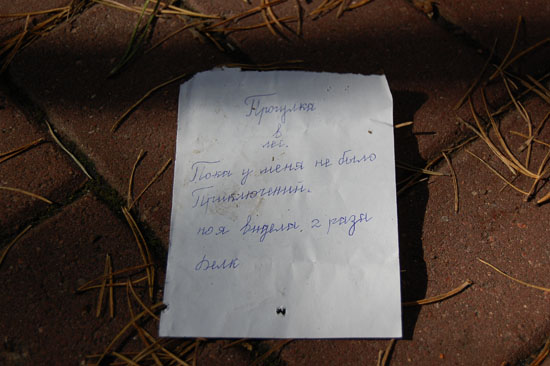 Прогулка
в
лес.
Пока у меня не было
Приключении.
поя видела. 2 раза
Белк